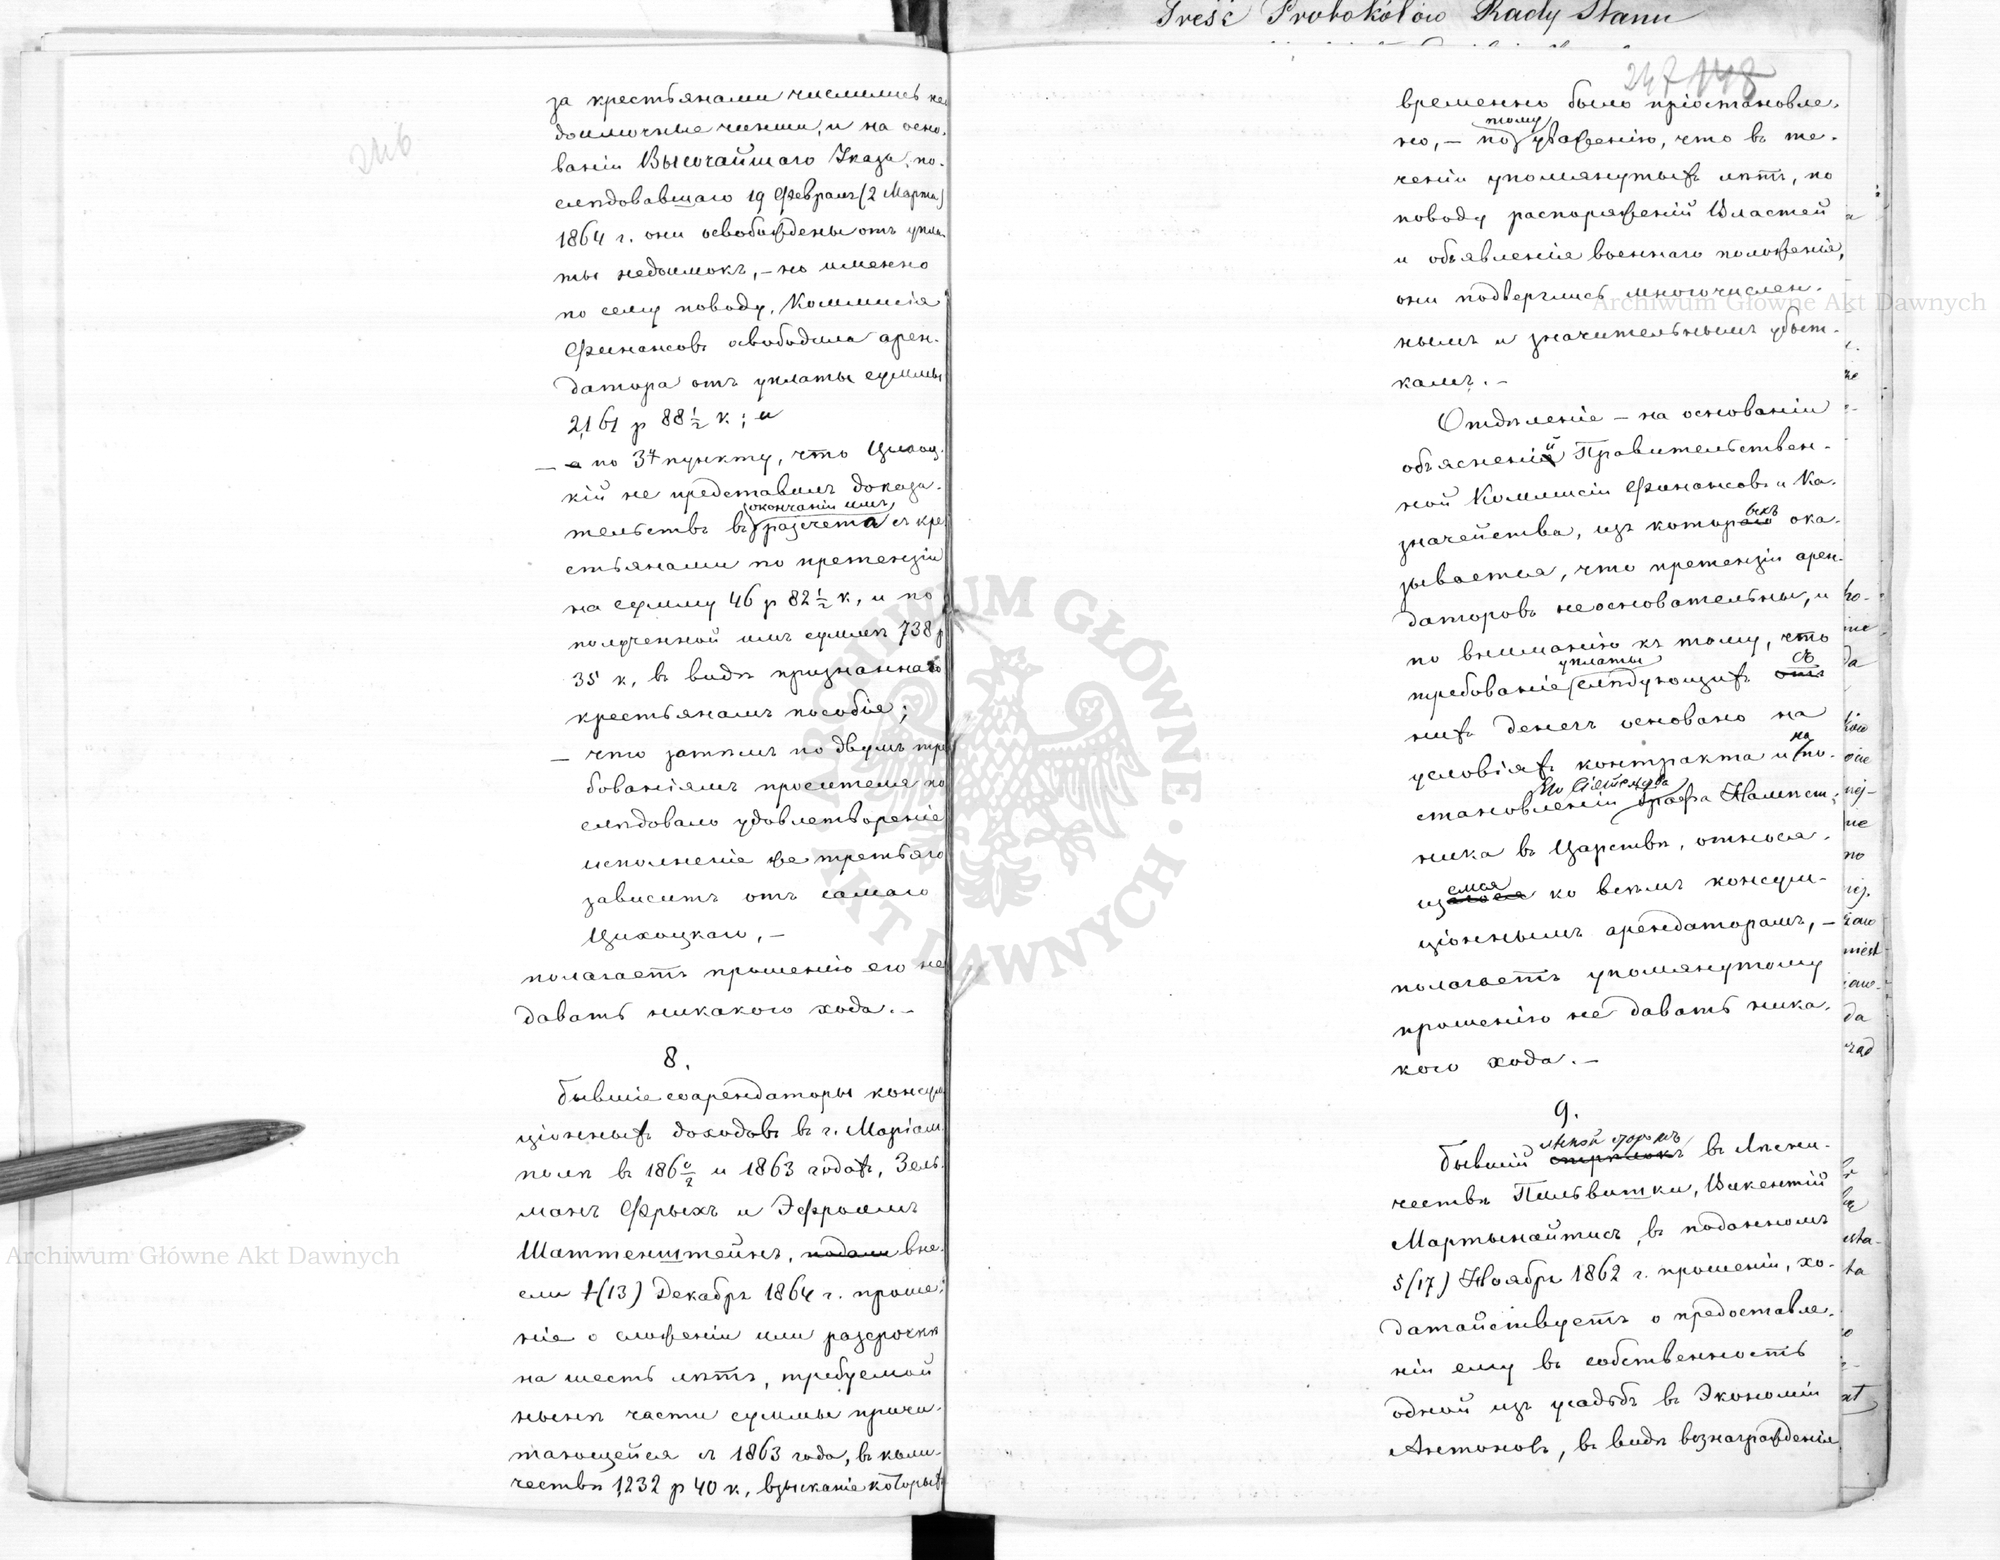 Treść Protokółów Rady Stanu
246
за крестьянами числились не-
доимочные чинши, и на осно-
ваніи Высочайшаго Указа, по-
слѣдовавшаго 19 Февраля (2 Марта)
1864 г. они освобождены отъ упла-
ты недоимокъ, – но именно
по сему поводу, Коммисія
Финансовъ освободила арен-
датора отъ уплаты суммы
2,161 р 88½ к; и
– а по 3му пункту, что Цихоц-
кій не представилъ доказа-
окончаніи имъ
тельствъ въ разсчета съ кре-
стьянами по претензіи
на сумму 46 р 82½ к, и по
полученной имъ суммѣ 738 р
35 к, въ видѣ признаннаго
крестьянамъ пособія;
– что затѣмъ по двумъ тре-
бованіямъ просителя по-
слѣдовало удовлетвореніе
исполненіе же третьяго
зависитъ отъ самаго
Цихоцкаго, –
полагаетъ прошенію его не
давать никакого хода. –
8.
Бывшіе соарендаторы консум-
ціонныхъ доходовъ въ г. Маріам-
полѣ въ 1860/2 и 1863 годахъ, Зель-
манъ Фрыхъ и Эфроимъ
Шаттенштейнъ, подали вне-
сли 1(13) Декабря 1864 г. проше-
ніе о сложеніи или разсрочкѣ
на шесть лѣтъ, требуемой
нынѣ части суммы причи-
тающейся съ 1863 года, въ коли-
чествѣ 1,232 р 40 к, взысканіе которыхъ
247 148
временно было пріостановле-
тому
но, – по уваженію, что въ те-
ченіи упомянутыхъ лѣтъ, по
поводу распоряженій Властей
и объявленія военнаго положенія,
они подверглись многочислен-
нымъ и значительнымъ убыт-
камъ. –
Отдѣленіе – на основаніи
объясненій Правительствен-
ной Коммисіи Финансовъ и Ка-
ыхъ
значейства, изъ котораго ока-
зывается, что претензіи арен-
даторовъ неосновательны, и
по вниманію къ тому, что
уплаты съ
требованіе слѣдующихъ отъ
нихъ денегъ основано на
на
условіяхъ контракта и по-
Его Сіятельства
становленіи Графа Намѣст-
ника въ Царствѣ, относя-
емся
щагося ко всѣмъ консум-
ціоннымъ арендаторамъ, –
полагаетъ упомянутому
прошенію не давать ника-
кого хода. –
9.
лѣсной сторожъ
Бывшій стрѣлокъ въ Лѣсни-
чествѣ Пильвишки, Викентій
Мартынайтисъ, въ поданномъ
5(17) Ноября 1862 г. прошеніи, хо-
датайствуетъ о предоставле-
ніи ему въ собственность
одной изъ усадьбъ въ Экономіи
Антоновъ, въ видѣ вознагражденія
Archiwum Główne Akt Dawnych
Archiwum Główne Akt Dawnych
ARCHIWUM GŁÓWNE AKT DAWNYCH